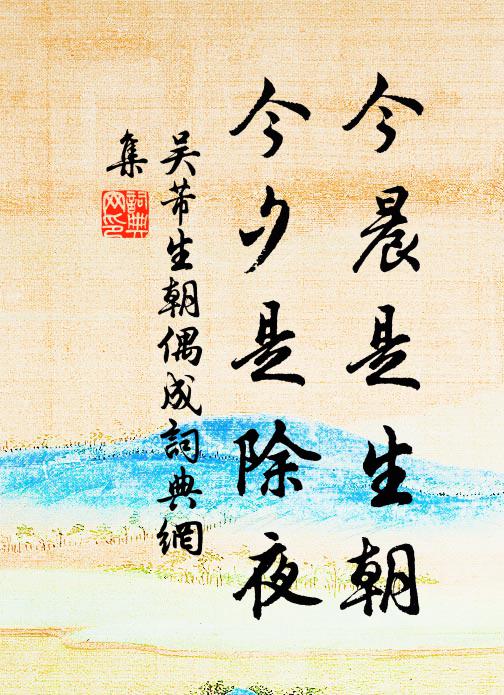 今晨是生朝
今夕是除夜
吴芾生朝偶成詞典網
集
詞典
网印